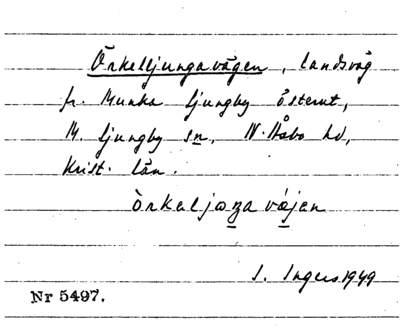 Örkelljungavägen, landsväg
fr. Munka Ljungby österut,
M. Ljungby sn, N. Åsbo hd,
Krist. län.
òrkeljoŋa væ̀jen
I. Ingers 1949
Nr 5497.